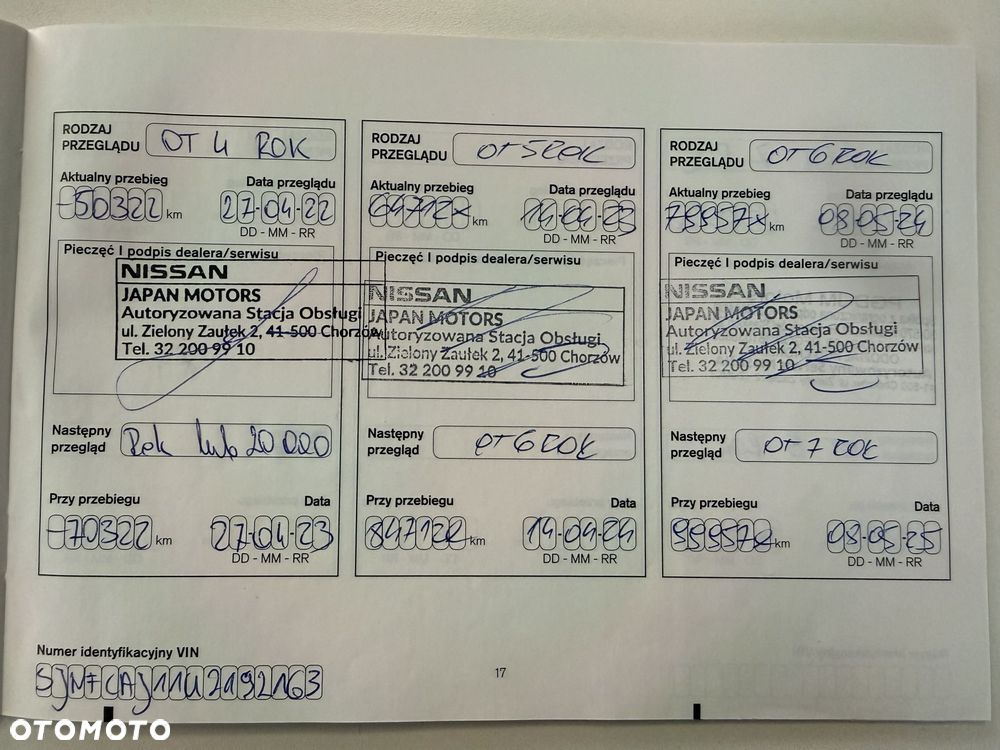 RODZAJ
PRZEGLĄDU
OT 4 ROK
Aktualny przebieg
Data przeglądu
-50322 km
27-04-22
DD - MM - RR
Pieczęć I podpis dealera/serwisu
NISSAN
JAPAN MOTORS
Autoryzowana Stacja Obsługi
ul. Zielony Zaułek 2, 41-500 Chorzów
Tel. 32 200 99 10
Następny
przegląd
Rok lub 20 000
Przy przebiegu
Data
-70322 km
27-04-23
DD - MM - RR
RODZAJ
PRZEGLĄDU
OT 5 ROK
Aktualny przebieg
Data przeglądu
km
14-04-23
DD - MM - RR
Pieczęć I podpis dealera/serwisu
NISSAN
JAPAN MOTORS
Autoryzowana Stacja Obsługi
ul. Zielony Zaułek 2, 41-500 Chorzów
Tel. 32 200 99 10
Następny
przegląd
OT 6 ROK
Przy przebiegu
Data
km
14-04-24
DD - MM - RR
RODZAJ
PRZEGLĄDU
OT 6 ROK
Aktualny przebieg
Data przeglądu
km
08-05-24
DD - MM - RR
Pieczęć I podpis dealera/serwisu
NISSAN
JAPAN MOTORS
Autoryzowana Stacja Obsługi
ul. Zielony Zaułek 2, 41-500 Chorzów
Tel. 32 200 99 10
Następny
przegląd
OT 7 ROK
Przy przebiegu
Data
km
08-05-25
DD - MM - RR
Numer identyfikacyjny VIN
SJNFCAJ11U2192163
17
OTOMOTO